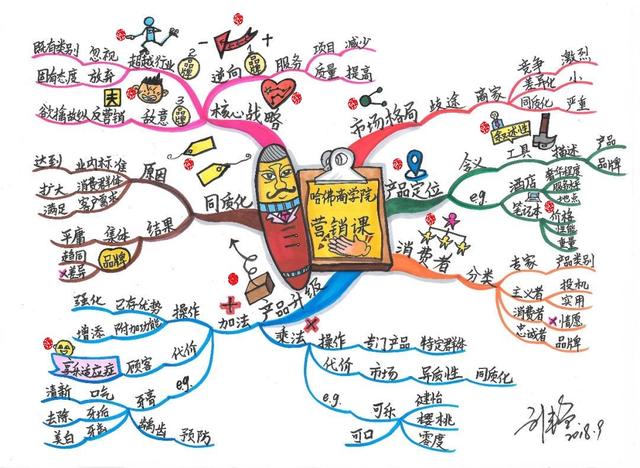 哈佛商学院
营销课
市场格局
歧途
商家
竞争 激烈
差异化 小
同质化 严重
产品定位
含义
工具
描述
叙述性
产品
品牌
e.g.
酒店
奢华程度
服务
地点
笔记本
价格
性能
重量
消费者
分类
专家 产品类别
投机
主义者 实用
消费者 情愿
忠诚者 品牌
产品升级
乘法
操作 专门产品 特定群体
代价 市场 异质性 同质化
e.g. 可乐
健怡
樱桃
可口 零度
加法
操作
已存优势 强化
附加功能 增添
代价
顾客
享乐适应症
e.g.
牙膏
口气 清新
牙垢 去除
牙齿 美白
龋齿 预防
同质化
原因
达到 业内标准
扩大 消费群体
满足 客户需求
结果
集体 平庸
品牌
趋同
差异
核心战略
逆向
1 品牌
服务
项目 减少
质量 提高
超越行业
2 品牌
既有类别 忽视
固有态度 放弃
敌意
3 品牌
欲擒故纵 反营销
2018.9